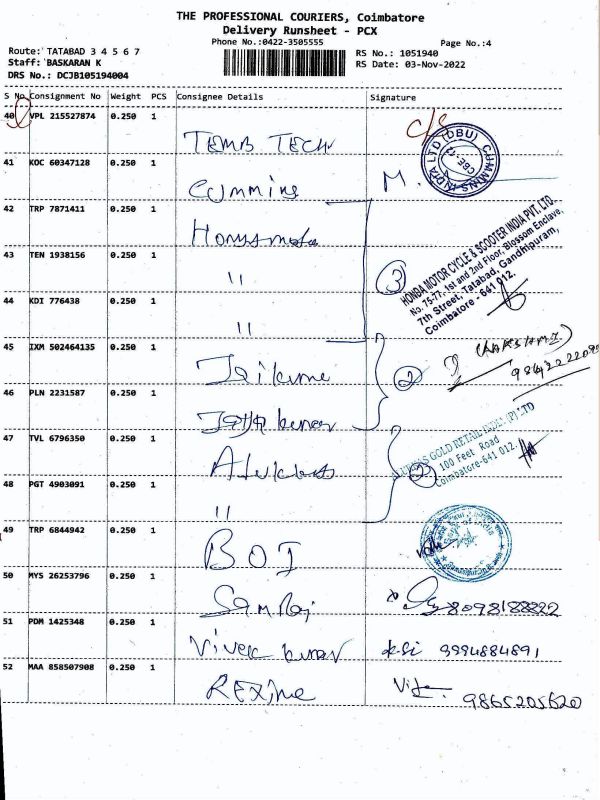 THE PROFESSIONAL COURIERS, Coimbatore
Delivery Runsheet - PCX
Phone No.:0422-3505555
Page No.:4
Route: TATABAD 3 4 5 6 7
Staff: BASKARAN K
DRS No.: DCJB105194004
RS No.: 1051940
RS Date: 03-Nov-2022
S No Consignment No Weight PCS Consignee Details Signature
40 VPL 215527874 0.250 1 TEMB TECH C/S
41 KOC 60347128 0.250 1 Cummins M.
INDIA LTD (DBU) CUMMINS
CBE-12
42 TRP 7871411 0.250 1
43 TEN 1938156 0.250 1 " 3
HONDA MOTOR CYCLE & SCOOTER INDIA PVT. LTD.
No. 75-77, 1st and 2nd Floor, Blossom Enclave,
7th Street, Tatabad, Gandhipuram,
Coimbatore - 641 012.
44 KDI 776438 0.250 1 "
45 IXM 502464135 0.250 1 2
46 PLN 2231587 0.250 1 kumar
47 TVL 6796350 0.250 1
GOLD RETAIL INDIA (P) LTD
100 Feet Road
Coimbatore-641 012.
48 PGT 4903091 0.250 1 " 2
49 TRP 6844942 0.250 1 BOI
50 MYS 26253796 0.250 1 Samraj 8098188222
51 PDM 1425348 0.250 1 Vivek kumar 9994884891
52 MAA 858507908 0.250 1 REXine 9865205620